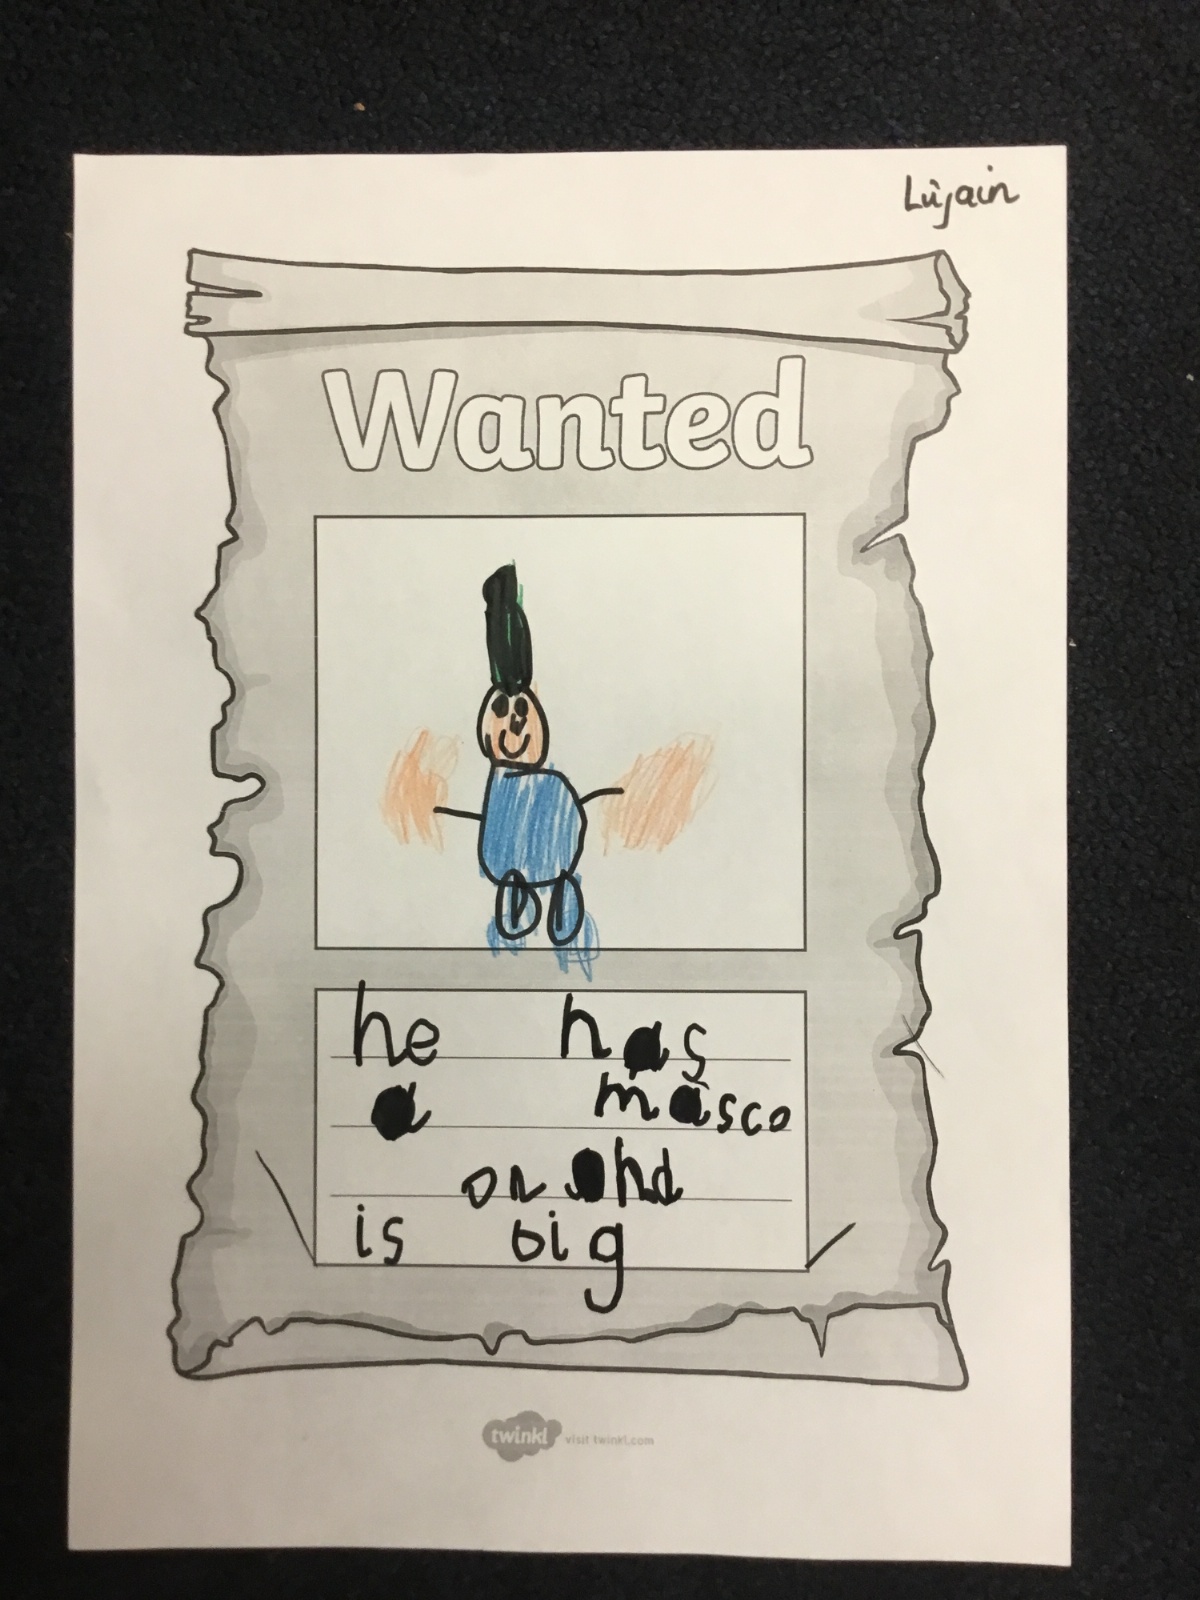 Lujain
Wanted
he has
a masco
on and
is big
twinkl visit twinkl.com